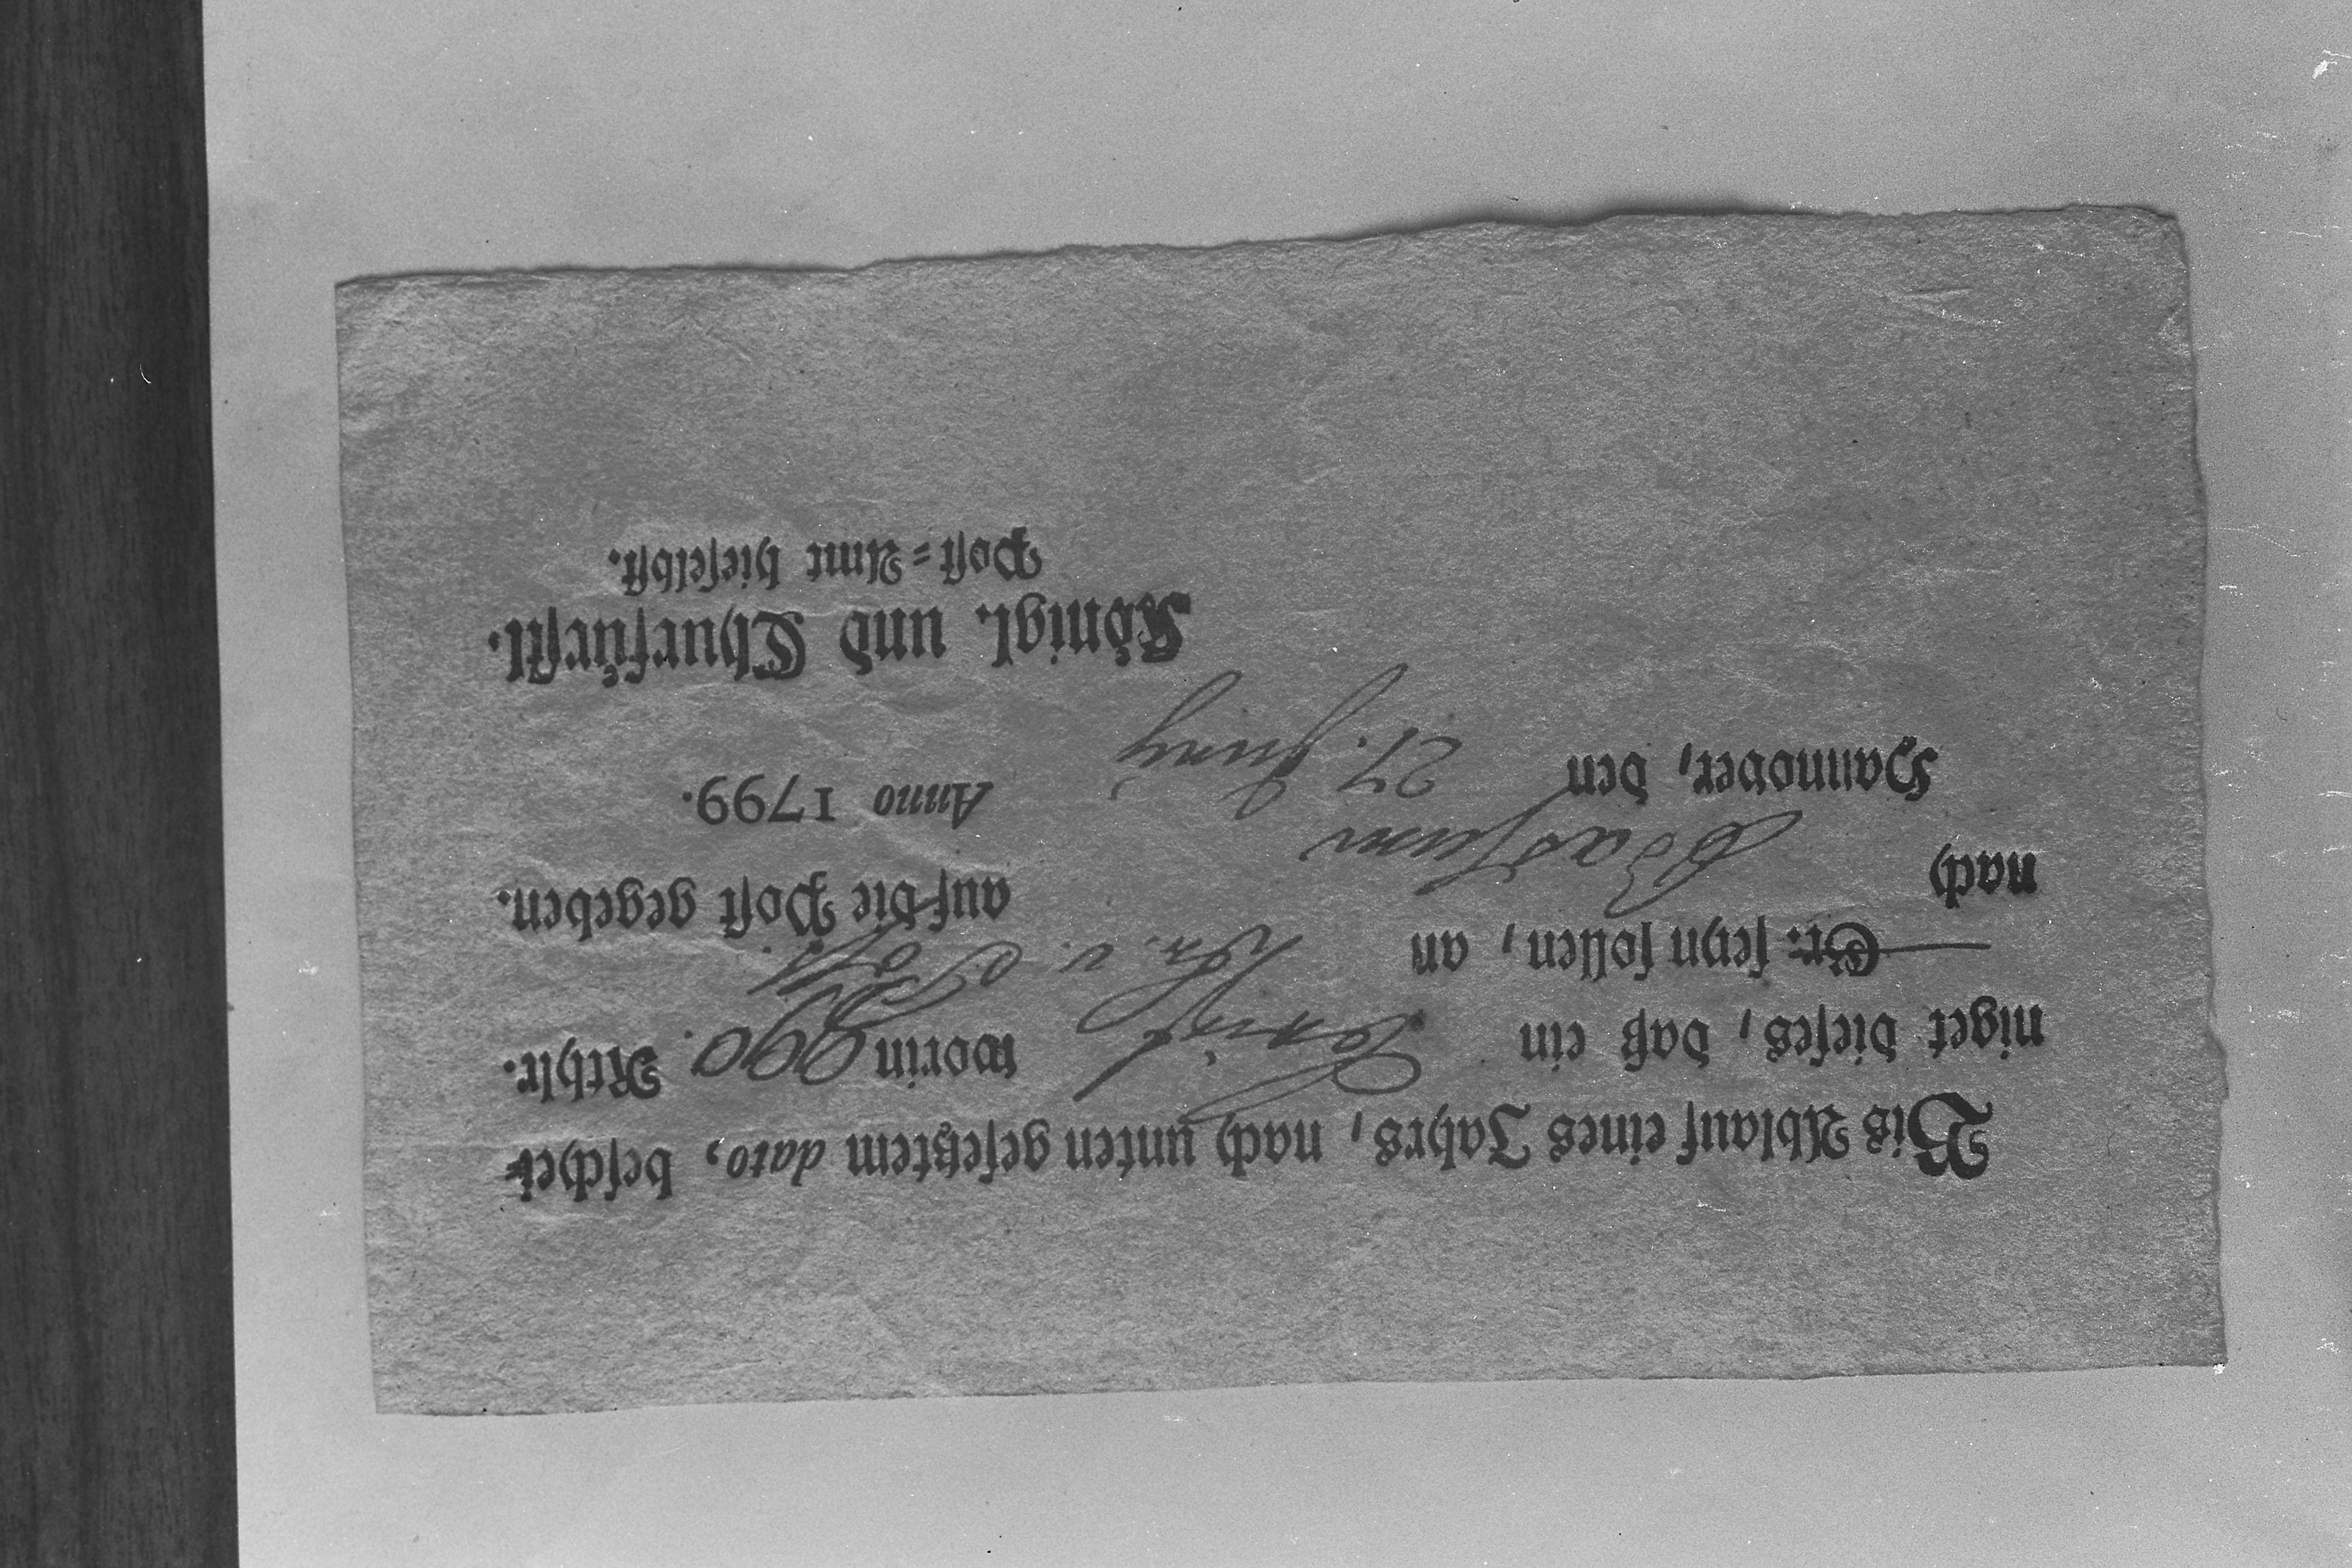 Bis Ablauf eines Jahrs, nach unten gesetztem dato, beschei-
niget dieses, daß ein worin 990. Rthlr.
Gr: seyn sollen, an Hn. v.
nach auf die Post gegeben.
Hannover, den 27. Juny Anno 1799.
Königl. und Churfürstl.
Post-Amt hieselbst.